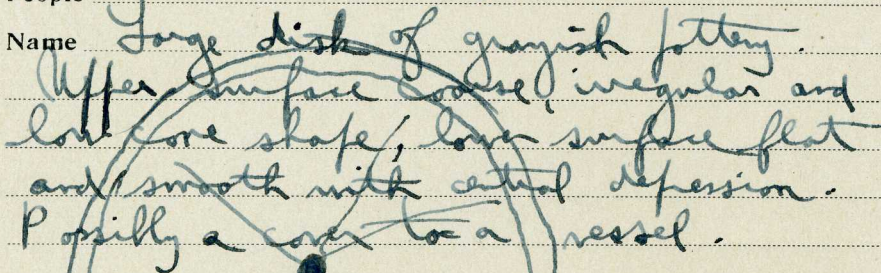 People
Name Large disk of grayish pottery.
Upper surface coarse, irregular and
low cone shape, lower surface flat
and smooth with central depression.
Possibly a cover to a vessel.